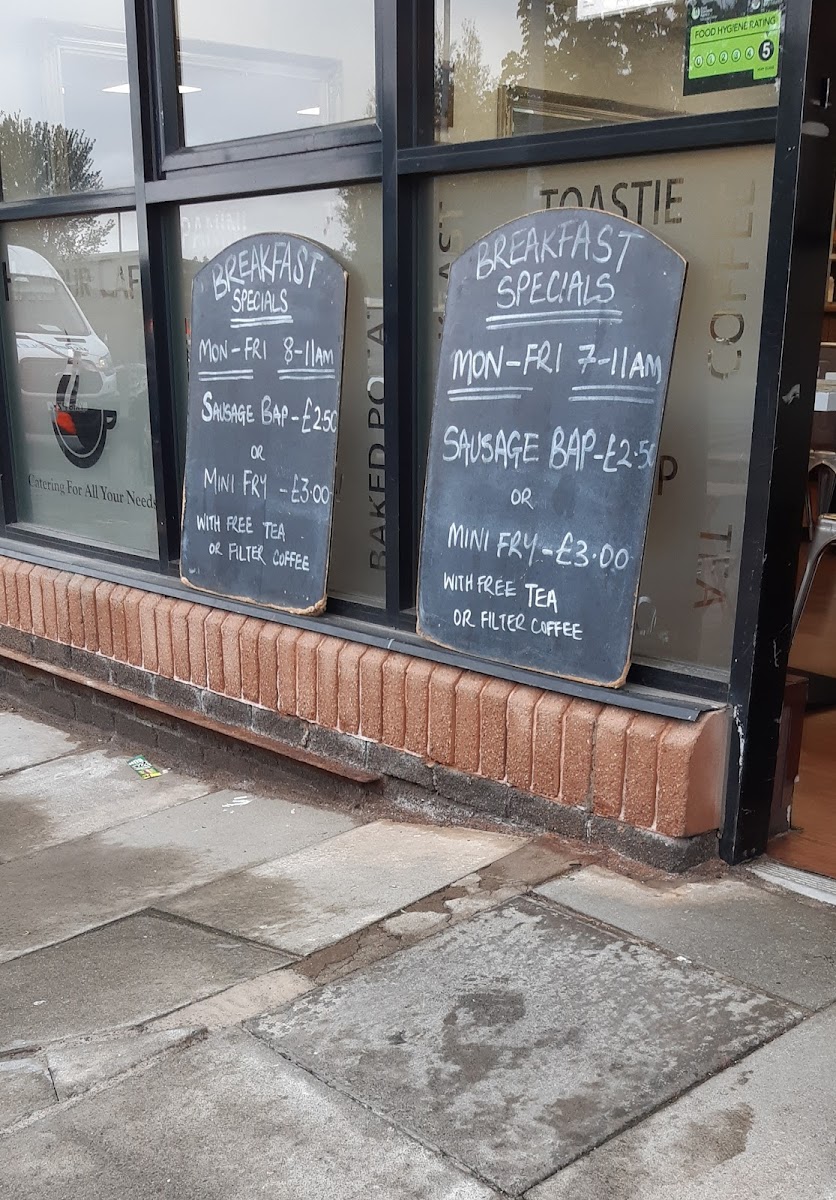 FOOD HYGIENE RATING
0 1 2 3 4 5
TOASTIE
COFFEE
TEA
BAKED POTAT
Catering For All Your Needs
BREAKFAST
SPECIALS
MON-FRI 8-11AM
SAUSAGE BAP-£2.50
OR
MINI FRY -£3.00
WITH FREE TEA
OR FILTER COFFEE
BREAKFAST
SPECIALS
MON-FRI 7-11AM
SAUSAGE BAP-£2.50
OR
MINI FRY-£3.00
WITH FREE TEA
OR FILTER COFFEE